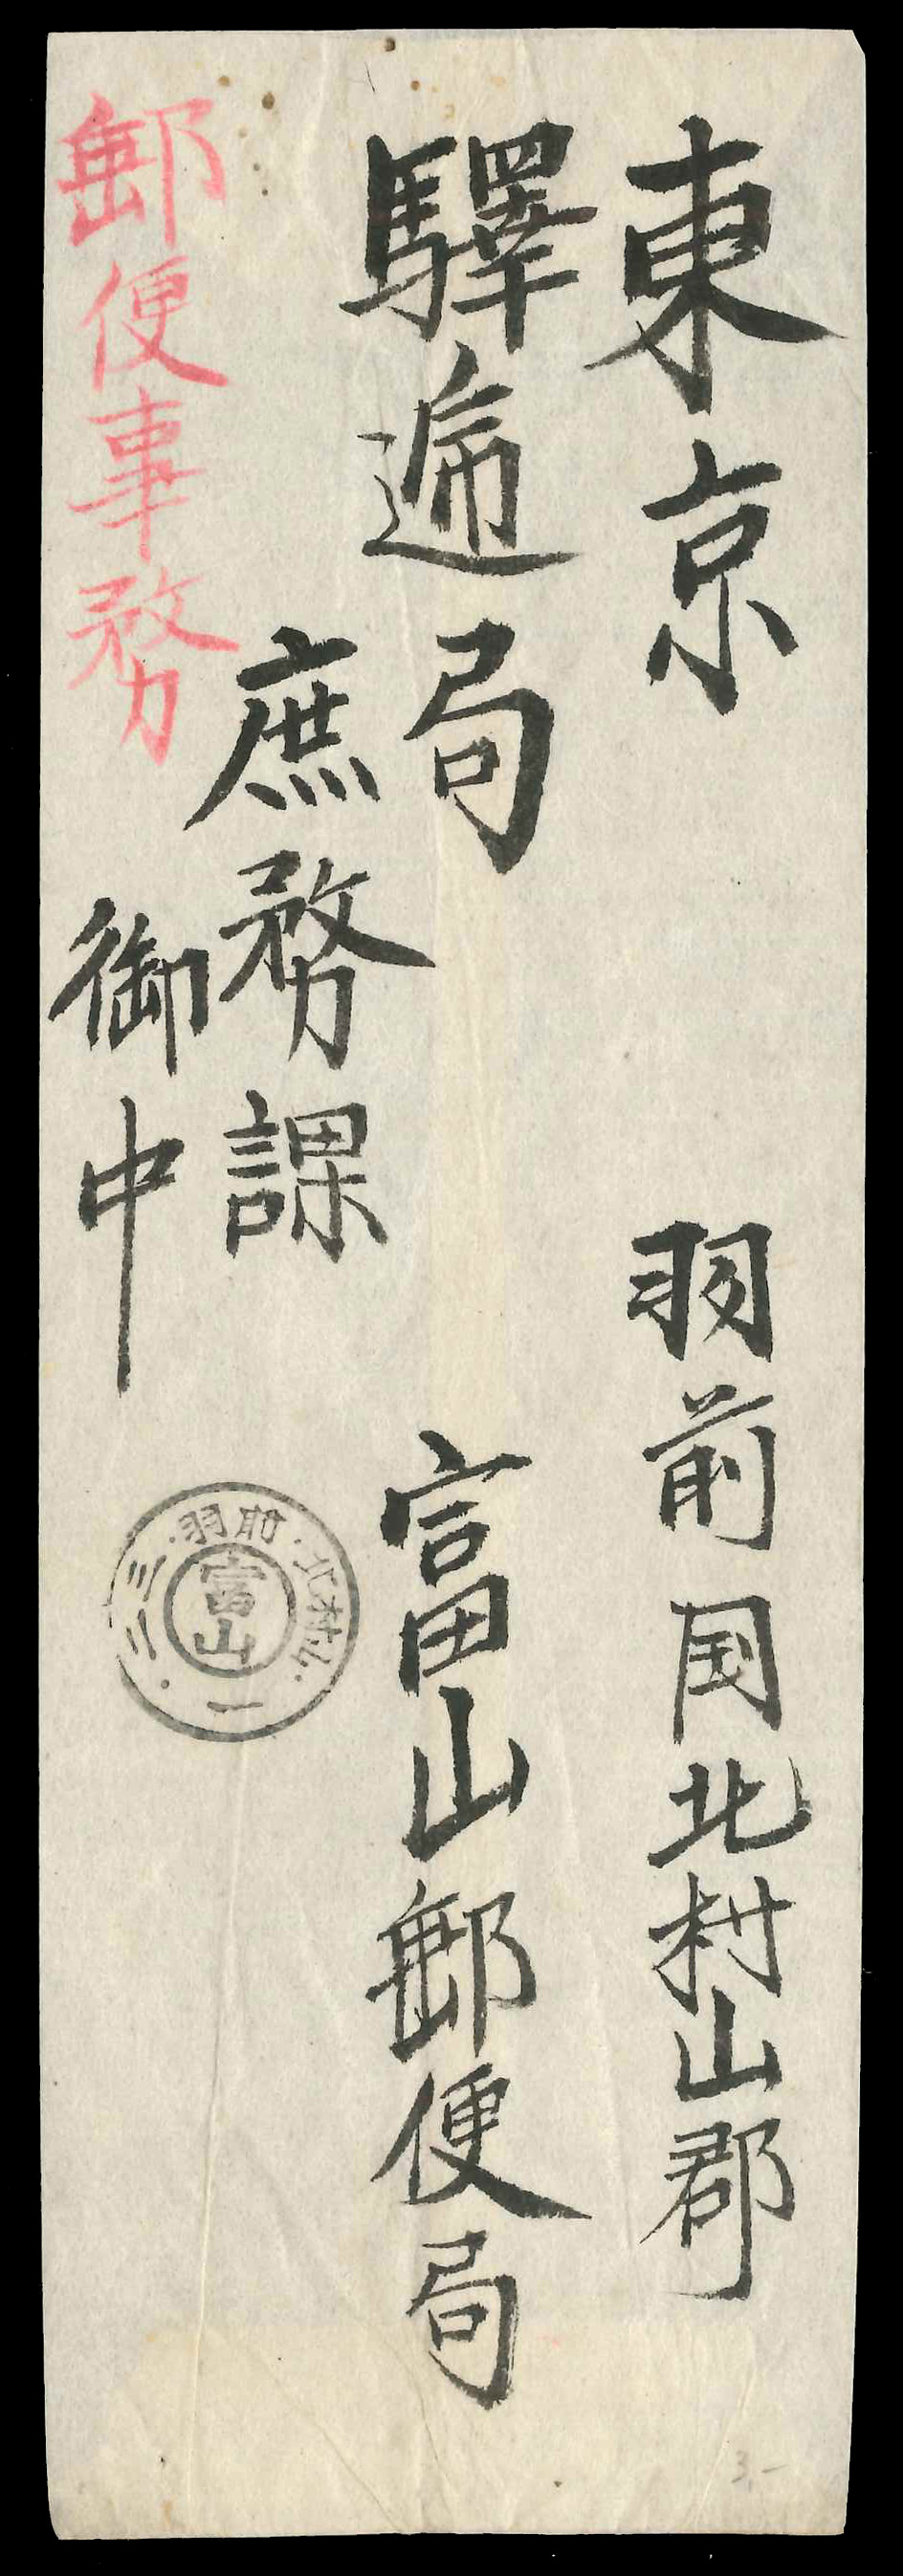 東京
驛逓局
庶務課
御中
郵便事務
羽前国北村山郡
富山郵便局
羽前・北村山・
富山
一